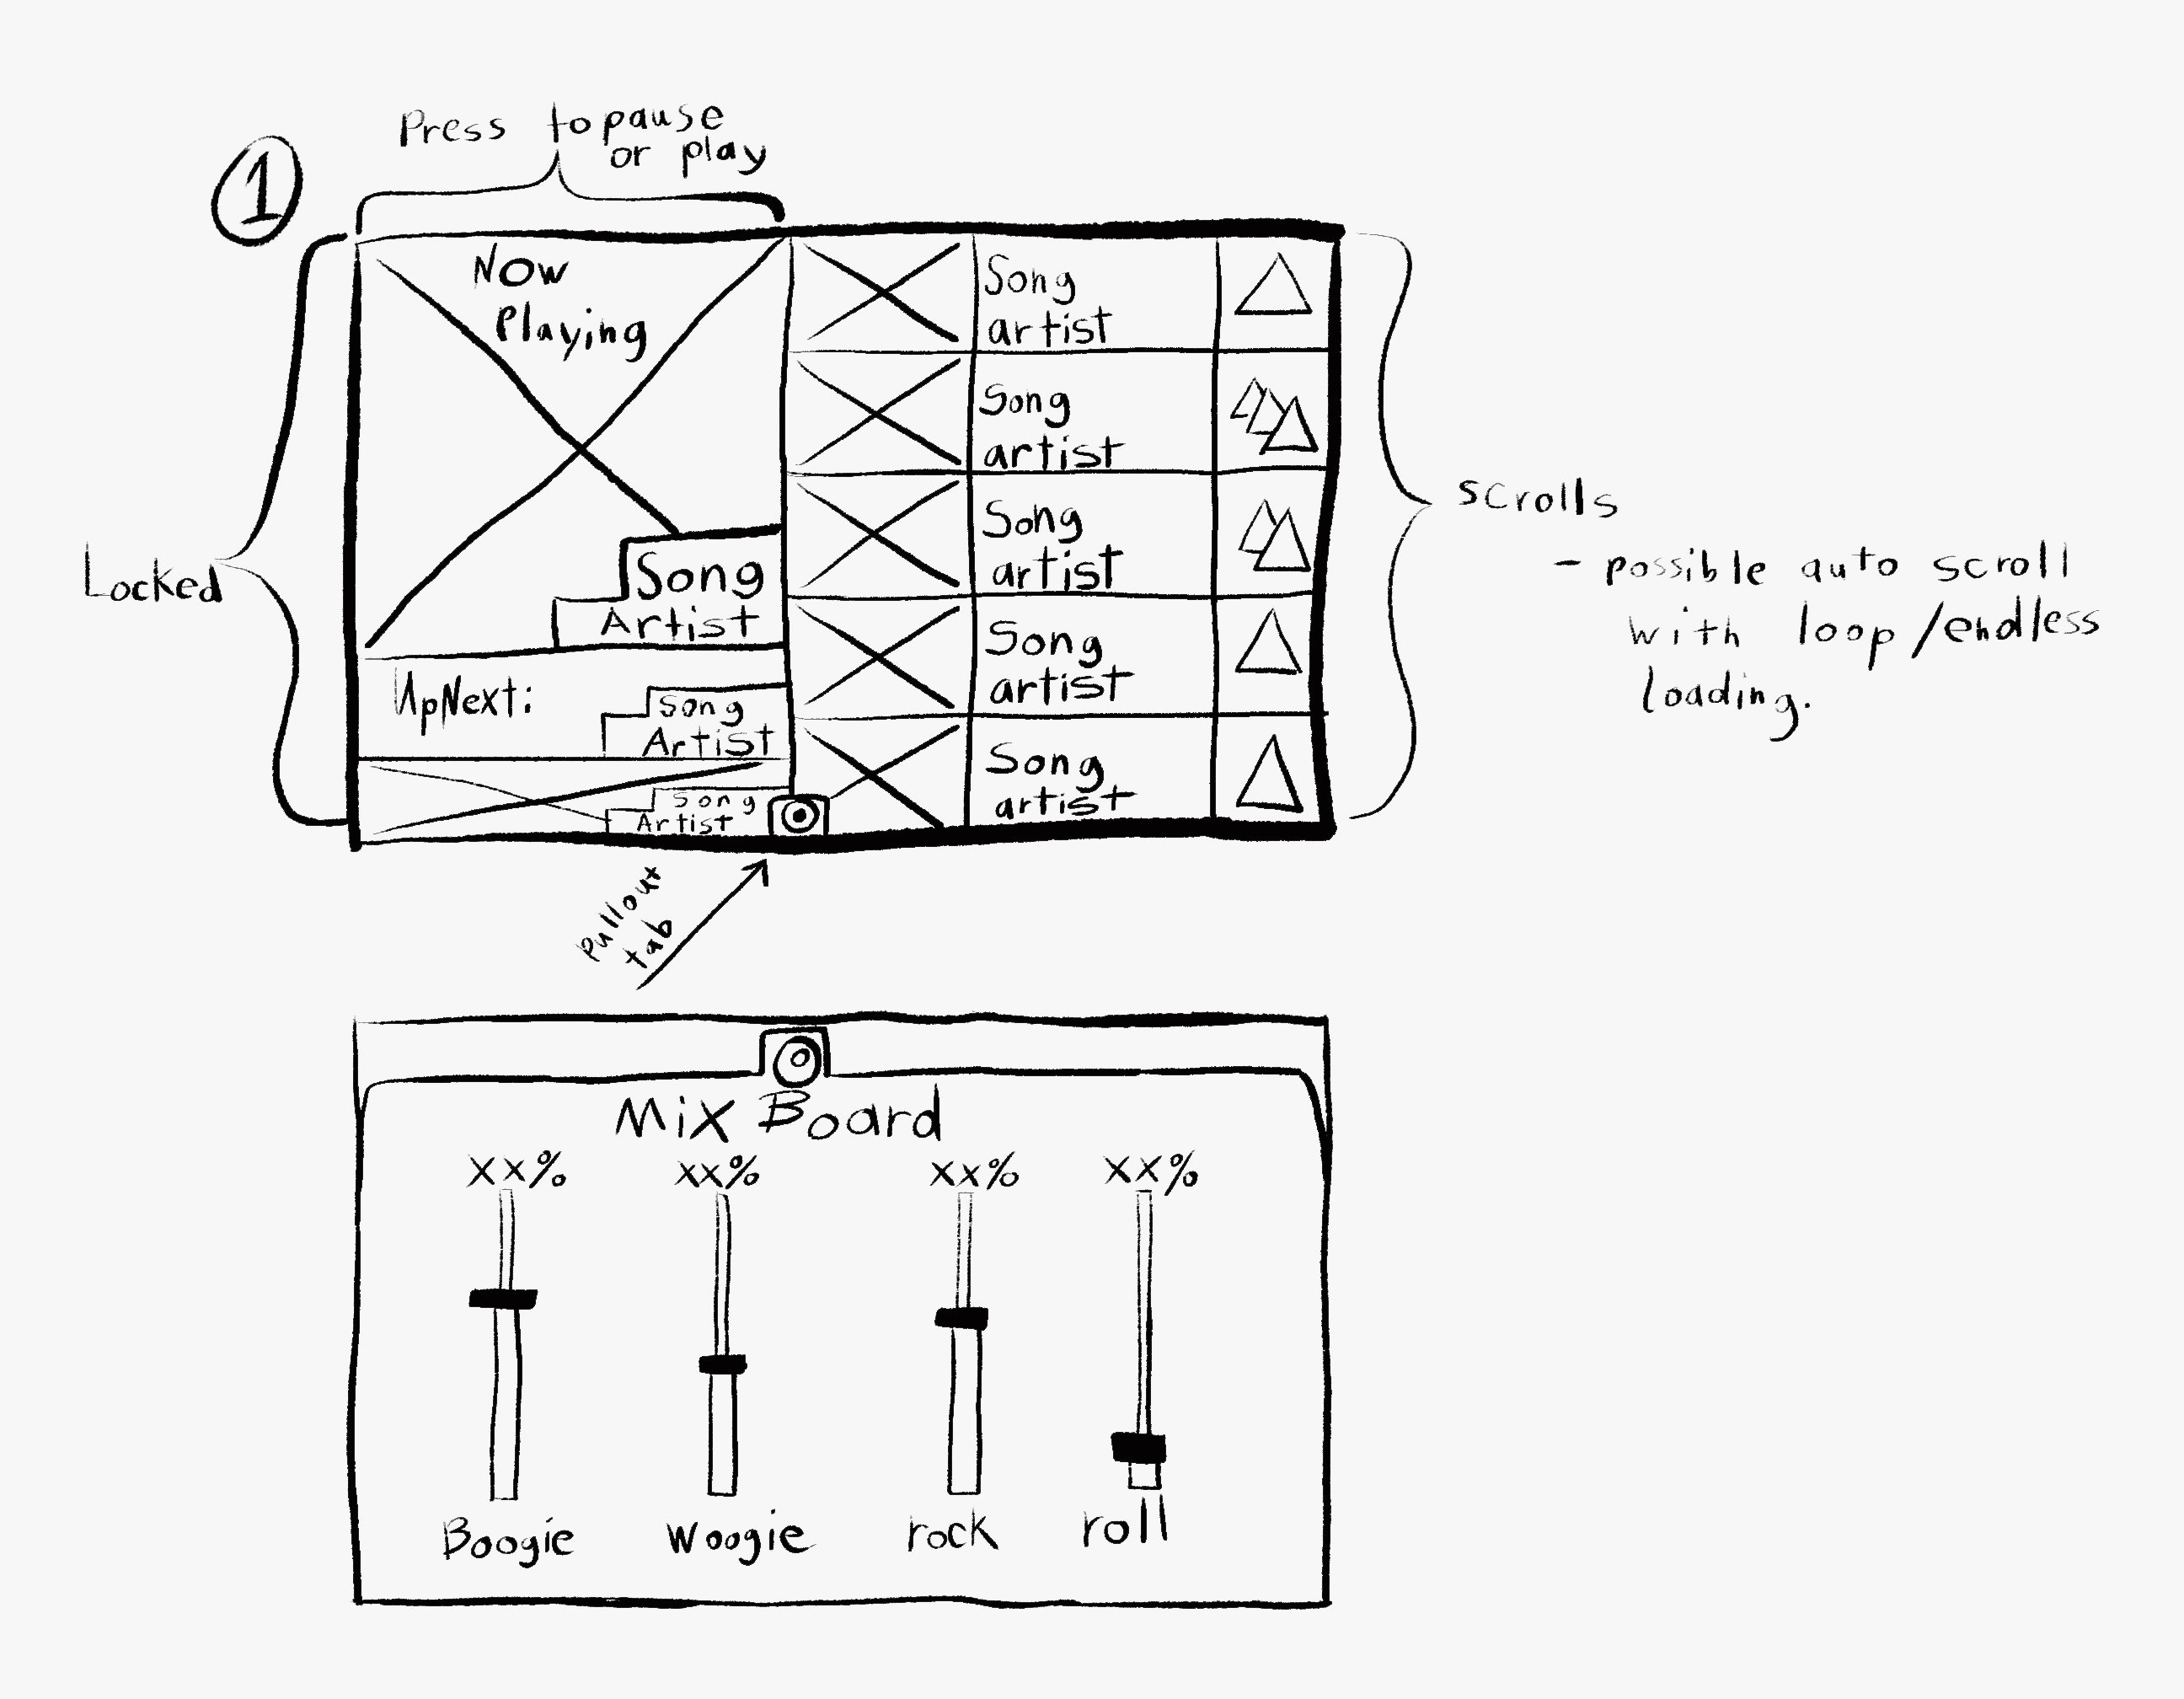 1
Press to pause
or play
Now
Playing
Song
Artist
UpNext:
Song
Artist
Song
Artist
Song
artist
Song
artist
Song
artist
Song
artist
Song
artist
Locked
scrolls
- possible auto scroll
with loop/endless
loading.
Pullout
tab
Mix Board
xx% xx% xx% xx%
Boogie Woogie rock roll